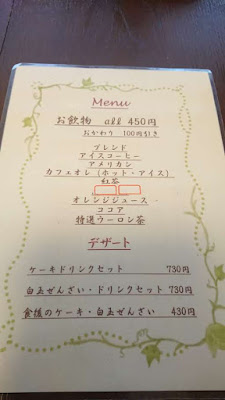 Menu
お飲物 all 450円
おかわり 100円引き
ブレンド
アイスコーヒー
アメリカン
カフェオレ (ホット・アイス)
紅茶
オレンジジュース
ココア
特選ウーロン茶
デザート
ケーキドリンクセット 730円
白玉ぜんざい・ドリンクセット 730円
食後のケーキ・白玉ぜんざい 430円